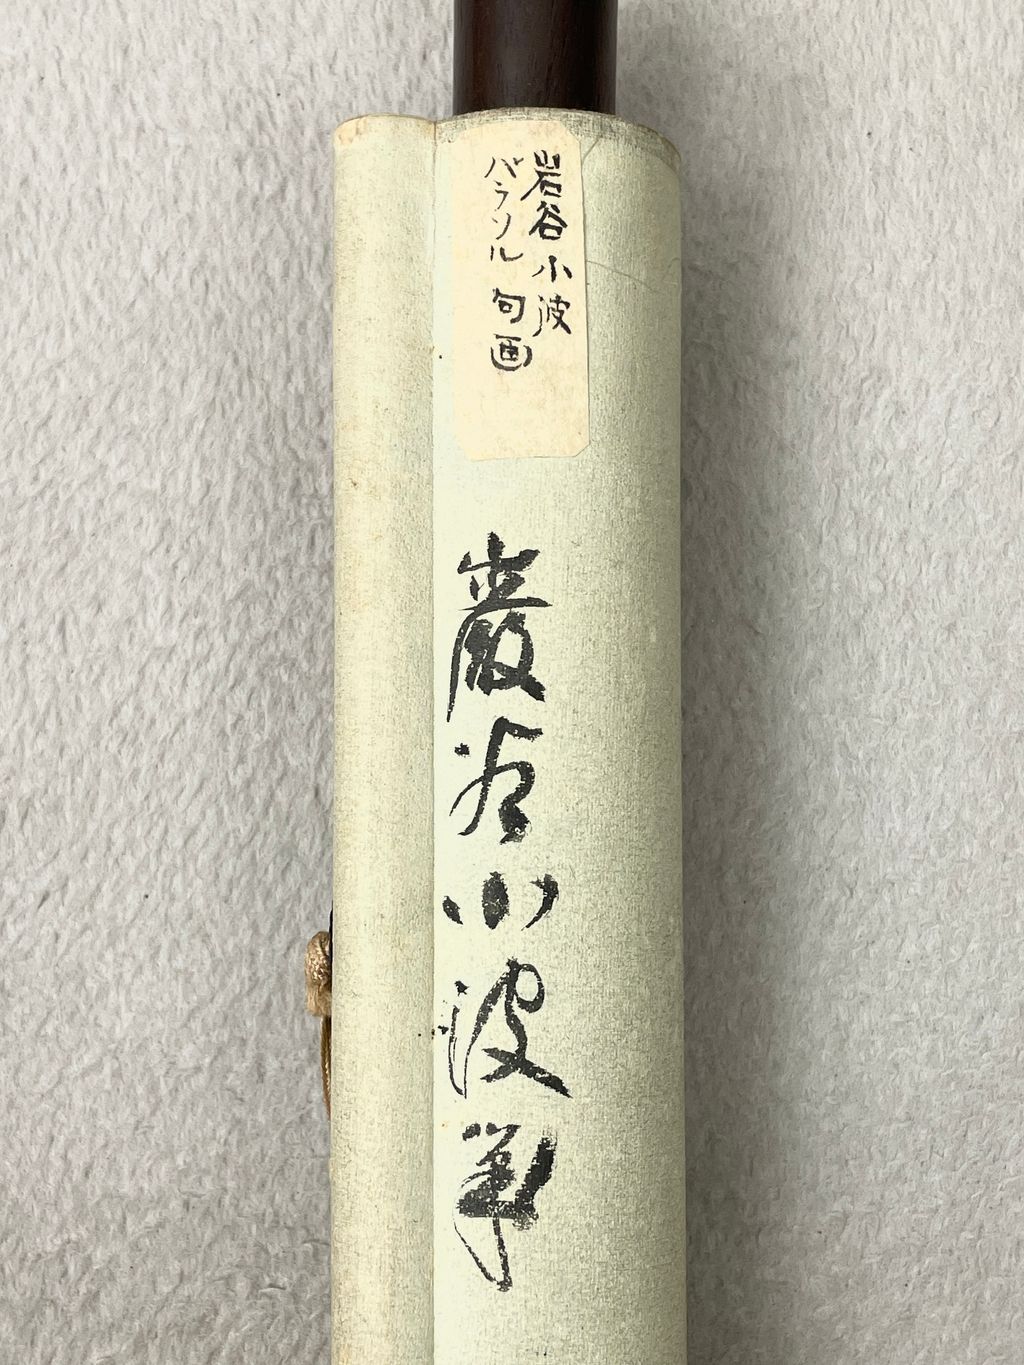 岩谷小波
パラソル 句画
巖谷小波筆